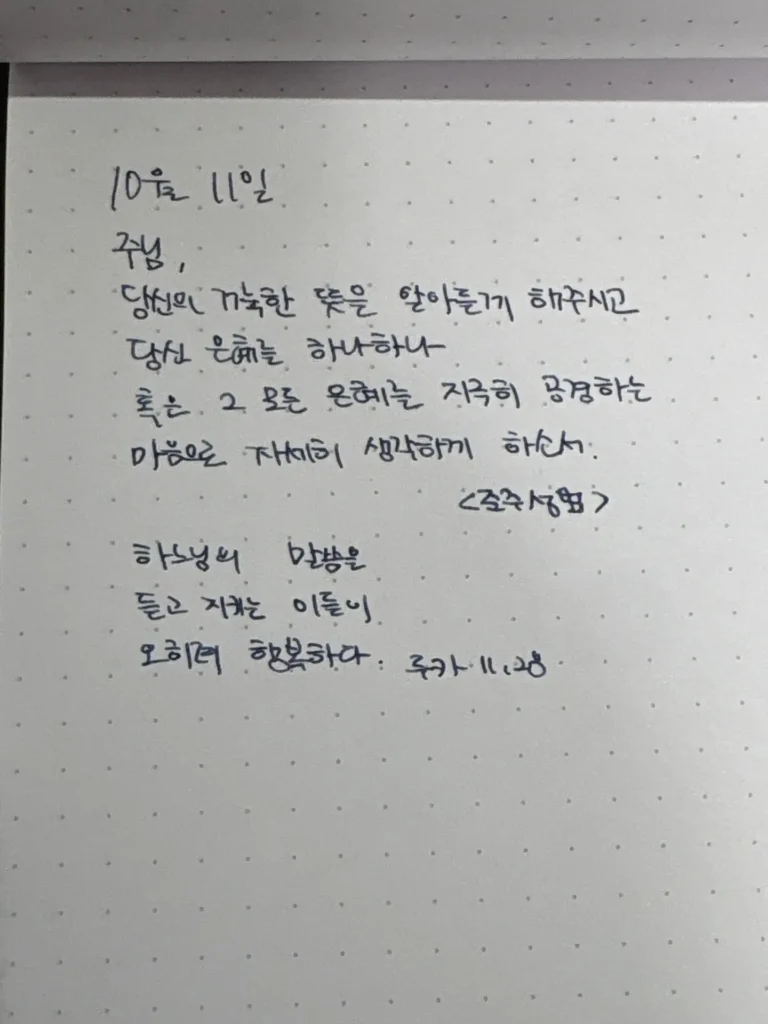 10월 11일
주님,
당신의 거룩한 뜻을 알아듣게 해주시고
당신 은혜를 하나하나
혹은 그 모든 은혜를 지극히 공경하는
마음으로 자세히 생각하게 하소서.
<준주성범>
하느님의 말씀을
듣고 지키는 이들이
오히려 행복하다. 루카 11.28